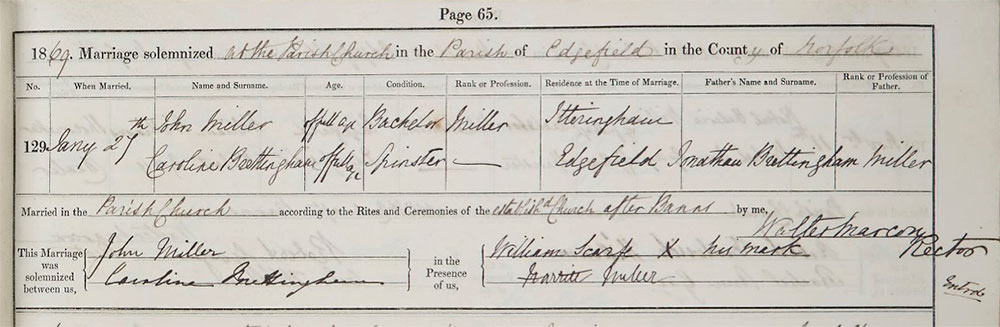 Page 65.
1869. Marriage solemnized at the Parish Church in the Parish of Edgefield in the County of Norfolk
No. When Married. Name and Surname. Age. Condition. Rank or Profession. Residence at the Time of Marriage. Father's Name and Surname. Rank or Profession of Father.
129 Jany 27th John Miller of full age Bachelor Miller Itteringham
Caroline Brettingham of full age Spinster — Edgefield Jonathan Brettingham Miller
Married in the Parish Church according to the Rites and Ceremonies of the establishd Church after Banns by me,
Walter Marcon Rector
This Marriage was solemnized between us, John Miller in the Presence of us, William Scarfe X his mark
Caroline Brettingham Harriet Miller